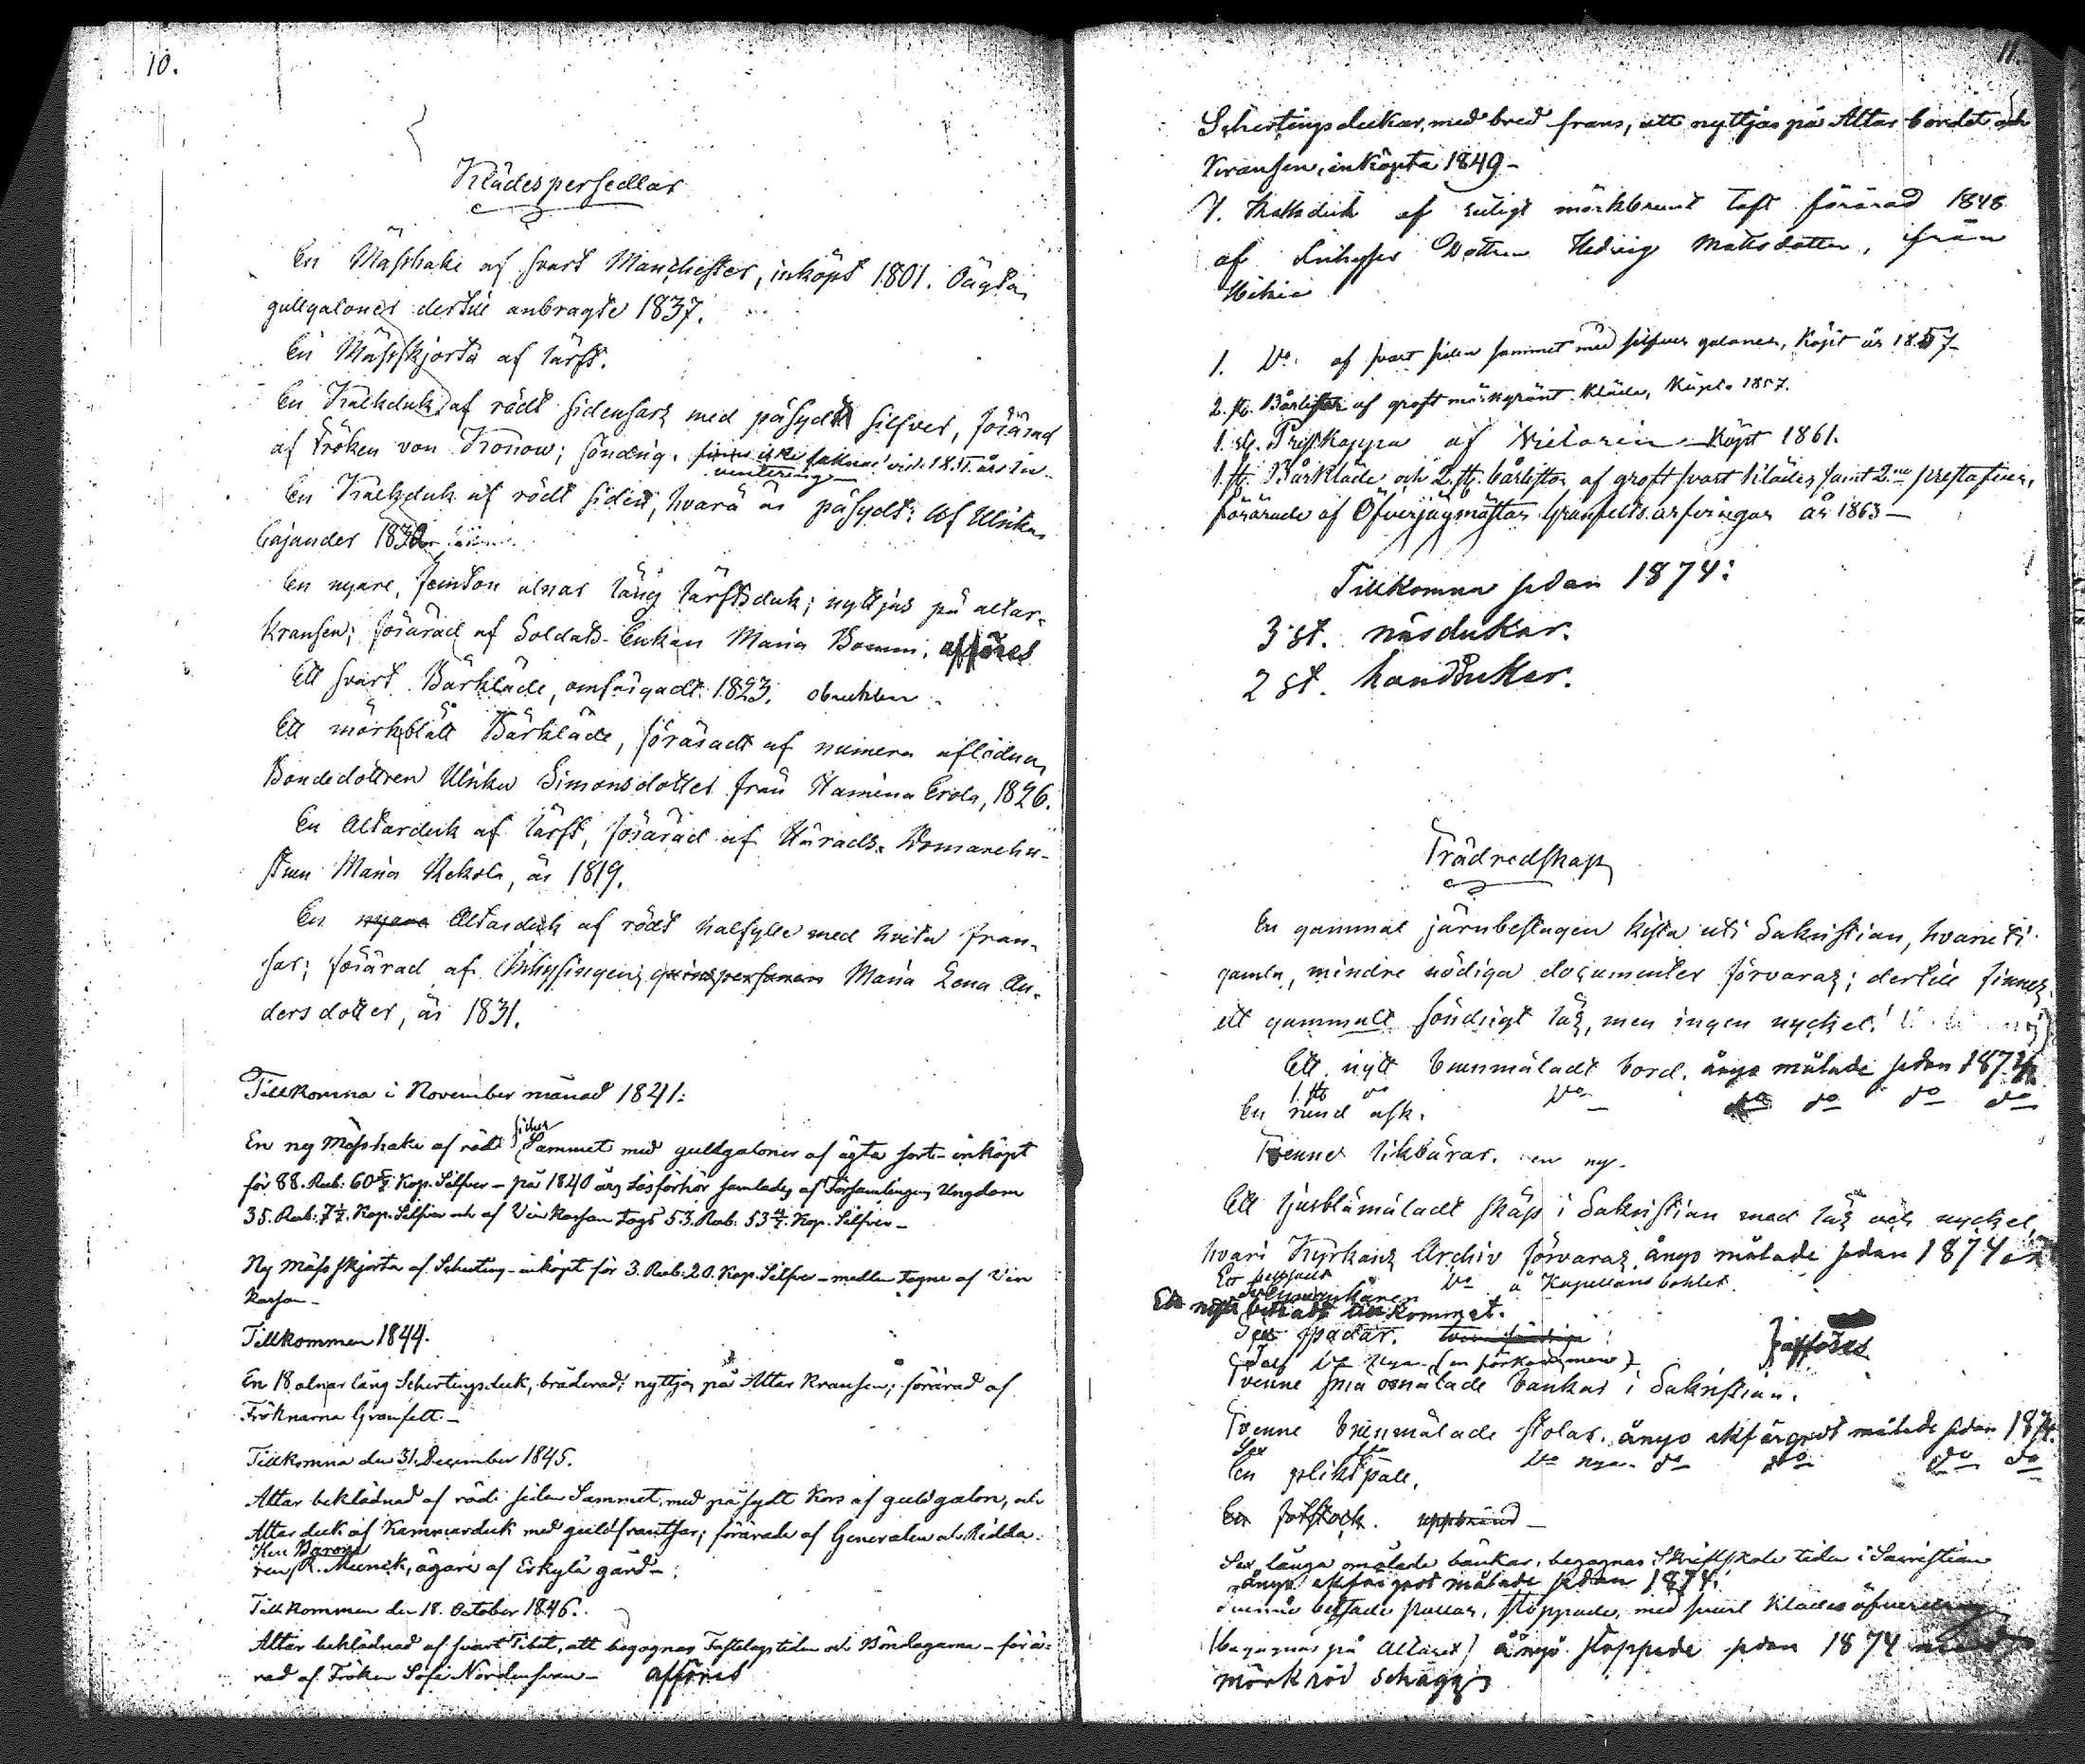 10.
Klädespersedlar
En Mässhake af svart Manchester, inköpt 1801. Oägta
gullgaloner dertill anbragte 1837.
En Mässkjorta af lärft.
En Kalkduk af rödt sidensarz med påsydt silfver, förärad
af Fröken von Kosnow; söndrig. finnes icke saknas vid 1851 års In-
ventering
En Kalkduk af rödt siden, hvarå är påsydt: Af Ulrika
Cajander 1830
En nyare, femton alnar lång lärftsduk; nyttjas på altar-
kransen; förärad af Soldats-Enkan Maria Bomm. afföres
Ett svart Bårkläde, omfärgadt 1823. obrukbar
Ett mörkblått Bårkläde, föräradt af numera aflidna
Bondedottren Ulrika Simonsdotter från Hamina Erola, 1826.
En Altarduk af lärft, förärad af Härads-Domarehu-
strun Maria Rekola, år 1819.
En nyare Altarduk af rödt halfylle med hvita fran-
sar; förärad af Inhysingen qvinspersonen Maria Lena An-
dersdotter, år 1831.
Tillkomna i November månad 1841:
siden
En ny Mässhake af rödt Sammet med guldgaloner af ägta sort - inköpt
för 88. Rub: 60 4/7 Kop. Silfver - på 1840 års Läsförhör samlades af Församlingens Ungdom
35. Rub: 7 1/7. Kop. Silfver och af Vin Kassan togs 53. Rub: 53 4/7. Kop. Silfver -
Ny Mässkjorta af Scherting - inköpt för 3. Rub: 20. Kop. Silfver - medlen tagne af Vin
Kassan -
Tillkommen 1844.
En 18 alnar lång Schertingsduk, bräderad; nyttjas på Altar Kransen; förärad af
Fröknarna Granfelt. -
Tillkomna den 31. December 1845.
Altar beklädnad af rödt siden Sammet, med påsydt Kors af guldgalon, och
Altar duk af Kammarduk med guldfrantsar; förärade af Generalen och Ridda-
Herr Baron
ren R. Munck, ägare af Erkylä gård -
Tillkommen den 18. October 1846.
Altar beklädnad af svart Tibet, att begagnas Fastlagstiden och Böndagarne - förä-
rad af Fröken Sofi Nordensvan - afföres
11.
Schertingsdukar, med bred frans, att nyttjas på Altar bordet och
Kransen, inköpta 1849 -
1. Kalkduk af mörkbrunt taft förärad 1848
af Inhyses Dottren Hedvig Mattsdotter, från
Hikiä
1. Do. af svart siden sammet med silfver galoner, Köpt år 1857 -
2. st. Bårlistor af groft mörkgrönt Kläde, Köpta 1857.
1. st. Prestkappa af Köpt 1861.
1. st. Bårkläde och 2. st. bårlistor af groft svart Kläde, samt 2.
förärade af Öfverjägmästar Granfelts arfvingar år 1863 -
Tillkomna sedan 1874:
3 st. näsdukar.
2 st. handdukar.
Trädredskap
En gammal järnbeslagen kista uti Sakristian, hvaruti
gamla, mindre nödiga documenter förvaras; dertill finnes
ett gammalt söndrigt lås, men ingen nyckel.
Ett nytt brunmåladt bord. ånyo målade sedan 1874
1. st do Do do do do do
En rund ask.
Tvenne likbårar. en ny.
Ett ljusblåmåladt skåp i Sakristian med lås och nyckel,
hvari Kyrkans Archiv förvaras, ånyo målade sedan 1874
Do å Kapellans bohlet
Ett nytt tillkommet.
Sex spadar. afföres
Två do nya (en förkommen)
Tvenne små omålade bänkar i Sakristian.
Tvenne brunmålade stolar. ånyo ekfärgadt målade sedan 1874.
Sex do Do nya. do do do do
En pliktpall.
En fotstock. uppbränd -
Sex långa omålade bänkar, begagnas Skriftskole tiden i Sacristian
ånyo ekfärgadt målade sedan 1874.
Tvenne betsade pallar, stoppade, med svart Klädes öfverdrag
(begagnas på Altaret) ånyo stoppade sedan 1874 med
mörkröd schagg